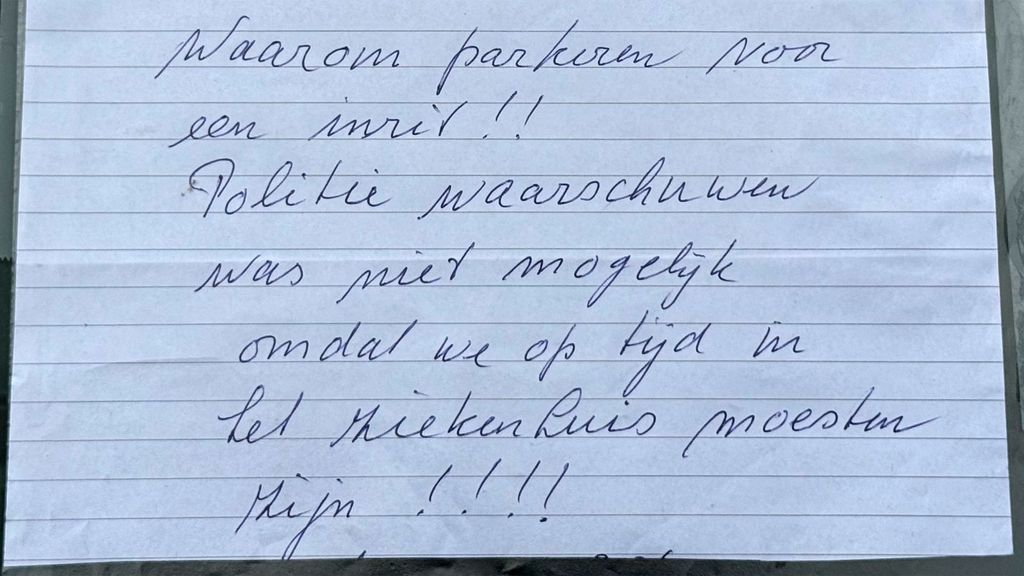 Waarom parkeren voor
een inrit!!
Politie waarschuwen
was niet mogelijk
omdat we op tijd in
het ziekenhuis moesten
zijn !!!!